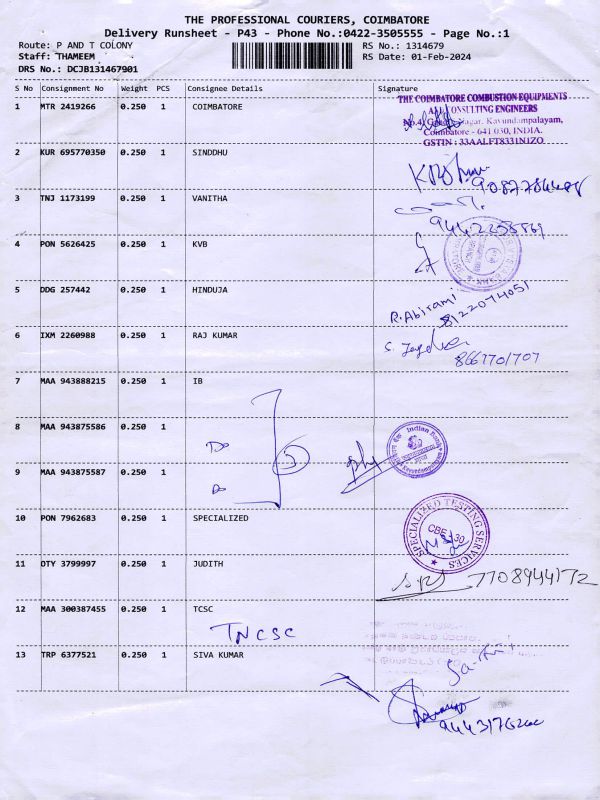 THE PROFESSIONAL COURIERS, COIMBATORE
Delivery Runsheet - P43 - Phone No.:0422-3505555 - Page No.:1
Route: P AND T COLONY
Staff: THAMEEM
DRS No.: DCJB131467901
RS No.: 1314679
RS Date: 01-Feb-2024
S No Consignment No Weight PCS Consignee Details Signature
1 MTR 2419266 0.250 1 COIMBATORE
THE COIMBATORE COMBUSTION EQUIPMENTS
AND CONSULTING ENGINEERS
Nagar, Kavundampalayam,
Coimbatore - 641 030, INDIA.
GSTIN : 33AALFT8331N1ZO
2 KUR 695770350 0.250 1 SINDDHU
3 TNJ 1173199 0.250 1 VANITHA
4 PON 5626425 0.250 1 KVB
5 DDG 257442 0.250 1 HINDUJA
R. Abirami
8122074051
6 IXM 2260988 0.250 1 RAJ KUMAR
7 MAA 943888215 0.250 1 IB
8 MAA 943875586 0.250 1
Do
Indian Bank
9 MAA 943875587 0.250 1
Do
3
10 PON 7962683 0.250 1 SPECIALIZED
SPECIALIZED TESTING SERVICES
CBE - 30
11 OTY 3799997 0.250 1 JUDITH
7708944172
12 MAA 300387455 0.250 1 TCSC
TNCSC
13 TRP 6377521 0.250 1 SIVA KUMAR